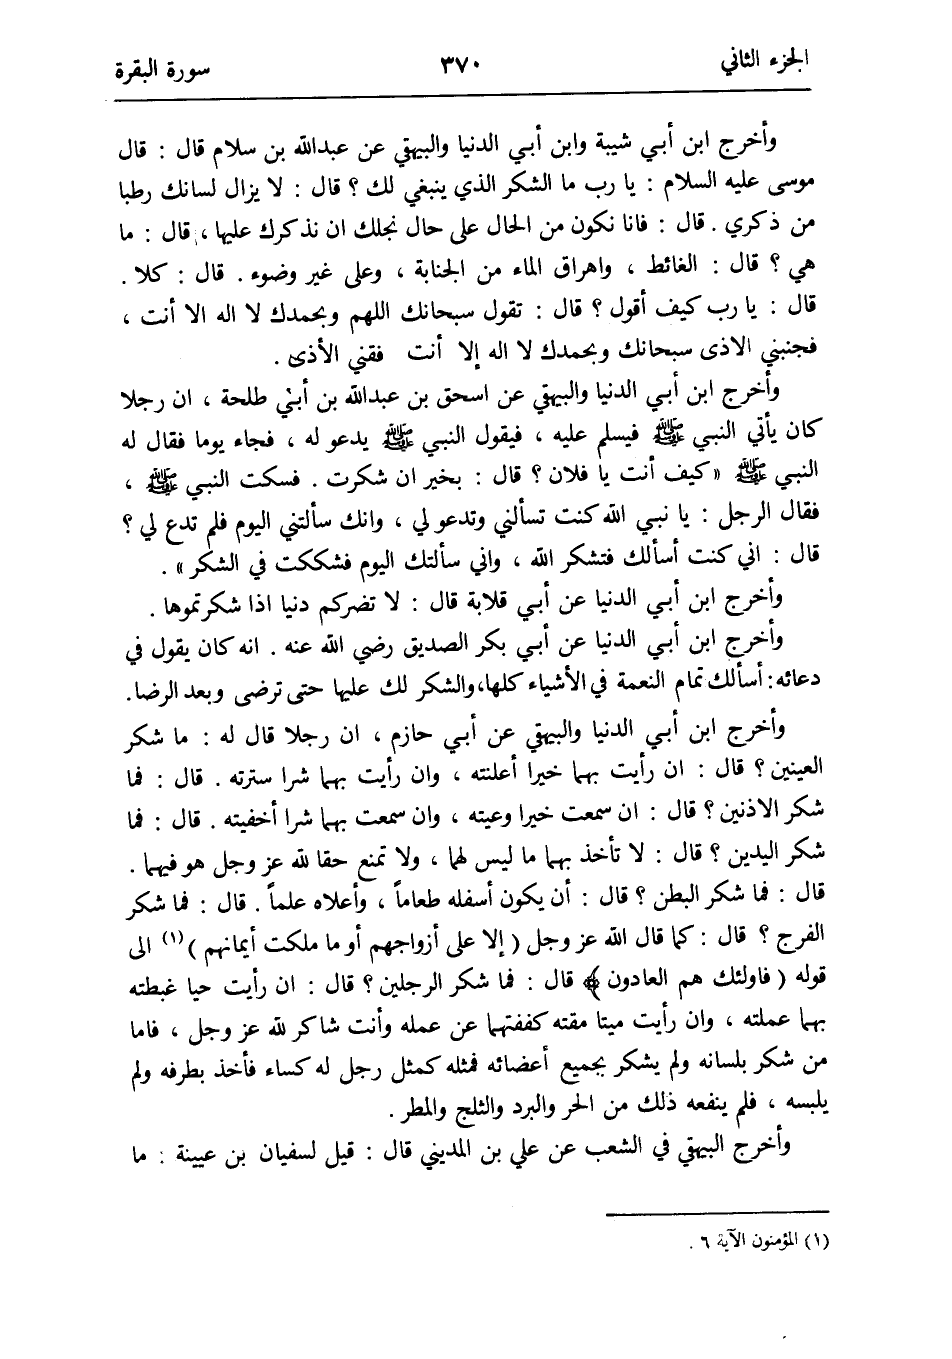 الجزء الثاني ٣٧٠ سورة البقرة
وأخرج ابن أبي شيبة وابن أبي الدنيا والبيهقي عن عبدالله بن سلام قال : قال
موسى عليه السلام : يا رب ما الشكر الذي ينبغي لك ؟ قال : لا يزال لسانك رطبا
من ذكري . قال : فانا نكون من الحال على حال نجلك ان نذكرك عليها ، قال : ما
هي ؟ قال : الغائط ، واهراق الماء من الجنابة ، وعلى غير وضوء . قال : كلا .
قال : يا رب كيف أقول ؟ قال : تقول سبحانك اللهم وبحمدك لا اله الا أنت ،
فجنبني الاذى سبحانك وبحمدك لا اله إلا أنت فقني الأذى .
وأخرج ابن أبي الدنيا والبيهقي عن اسحق بن عبدالله بن أبي طلحة ، ان رجلا
كان يأتي النبي ﷺ فيسلم عليه ، فيقول النبي ﷺ يدعو له ، فجاء يوما فقال له
النبي ﷺ « كيف أنت يا فلان ؟ قال : بخير ان شكرت . فسكت النبي ﷺ ،
فقال الرجل : يا نبي الله كنت تسألني وتدعو لي ، وانك سألتني اليوم فلم تدع لي ؟
قال : اني كنت أسألك فتشكر الله ، واني سألتك اليوم فشككت في الشكر » .
وأخرج ابن أبي الدنيا عن أبي قلابة قال : لا تضركم دنيا اذا شكرتموها .
وأخرج ابن أبي الدنيا عن أبي بكر الصديق رضي الله عنه . انه كان يقول في
دعائه: أسألك تمام النعمة في الأشياء كلها، والشكر لك عليها حتى ترضى وبعد الرضا.
وأخرج ابن أبي الدنيا والبيهقي عن أبي حازم ، ان رجلا قال له : ما شكر
العينين ؟ قال : ان رأيت بهما خيرا أعلنته ، وان رأيت بهما شرا سترته . قال : فما
شكر الاذنين ؟ قال : ان سمعت خيرا وعيته ، وان سمعت بهما شرا أخفيته . قال : فما
شكر اليدين ؟ قال : لا تأخذ بهما ما ليس لهما ، ولا تمنع حقا لله عز وجل هو فيهما .
قال : فما شكر البطن ؟ قال : أن يكون أسفله طعاماً ، وأعلاه علماً . قال : فما شكر
الفرج ؟ قال : كما قال الله عز وجل ( إلا على أزواجهم أو ما ملكت أيمانهم ) (١) الى
قوله ( فاولئك هم العادون ﴾ قال : فما شكر الرجلين ؟ قال : ان رأيت حيا غبطته
بهما عملته ، وان رأيت ميتا مقته كففتهما عن عمله وأنت شاكر لله عز وجل ، فاما
من شكر بلسانه ولم يشكر بجميع أعضائه فمثله كمثل رجل له كساء فأخذ بطرفه ولم
يلبسه ، فلم ينفعه ذلك من الحر والبرد والثلج والمطر .
وأخرج البيهقي في الشعب عن علي بن المديني قال : قيل لسفيان بن عيينة : ما
(١) المؤمنون الآية ٦ .